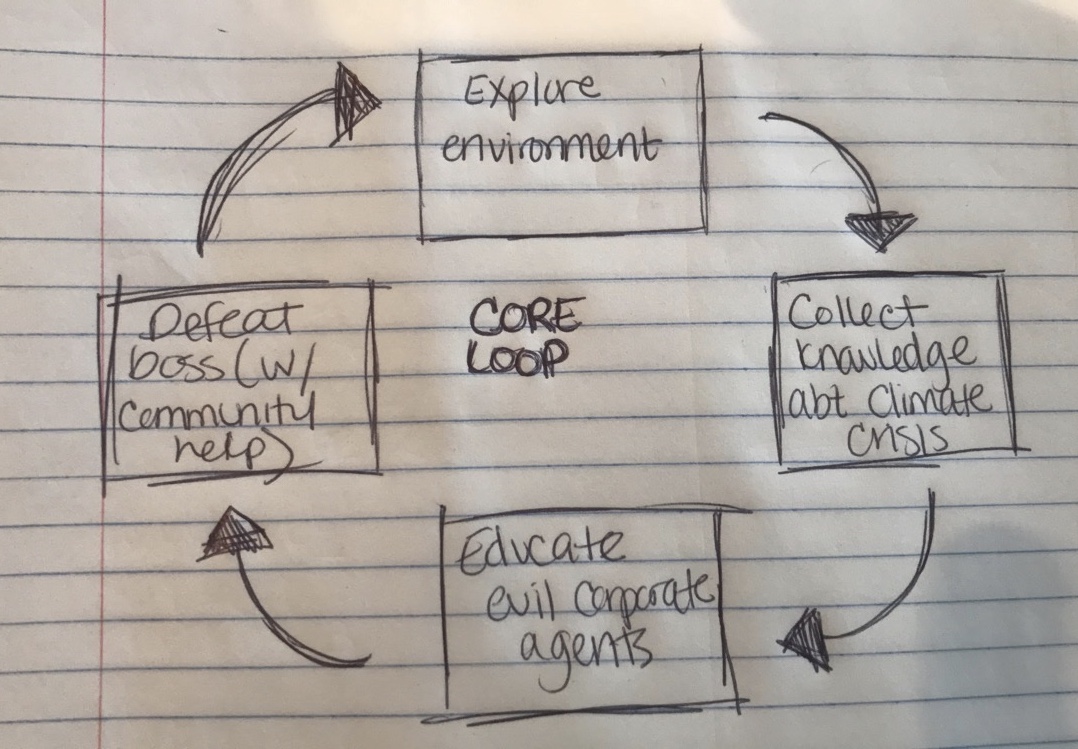 Explore
environment
Collect
knowledge
abt climate
crisis
Educate
evil corporate
agents
Defeat
boss (w/
community
help)
CORE
LOOP